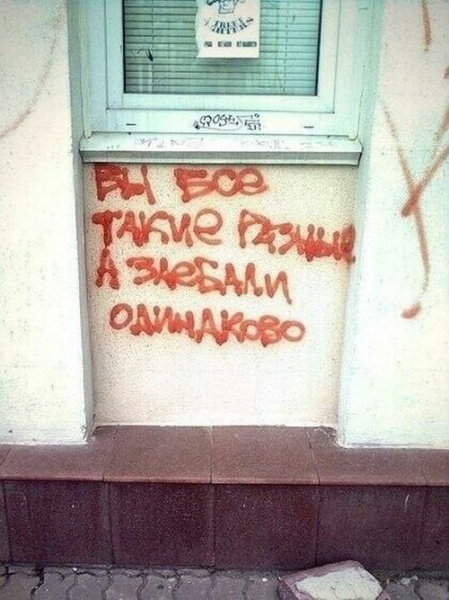 ВЫ ВСЕ
ТАКИЕ РАЗНЫЕ
А ЗАЕБАЛИ
ОДИНАКОВО